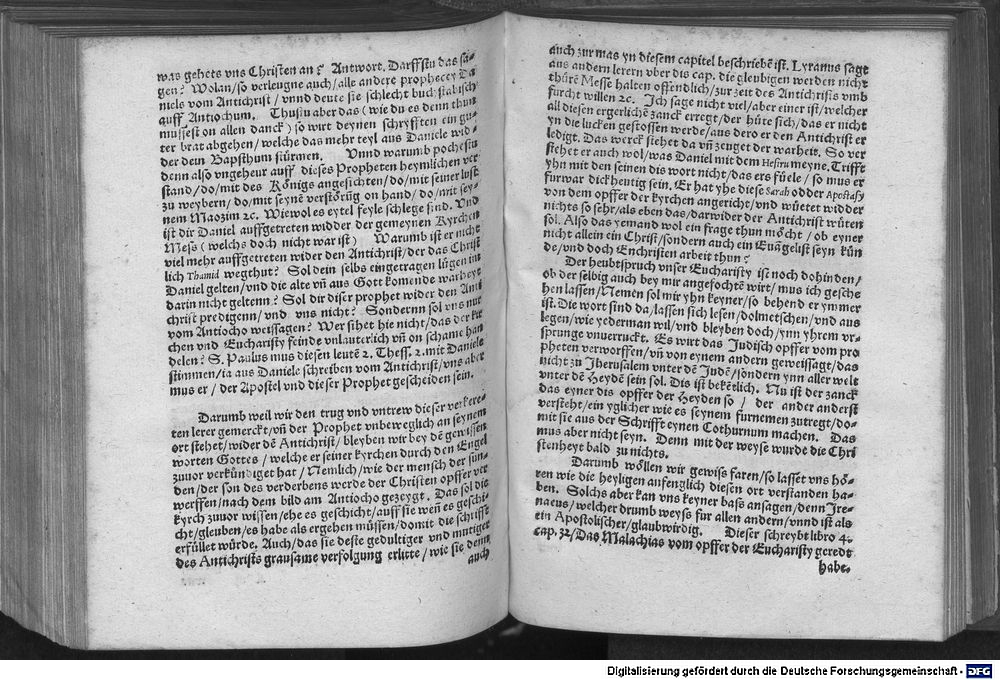 was gehets vns Christen an? Antwort. Darffstu das sa-
gen? Wolan/so verleugne auch/alle andere prophecey Da
niels vom Antichrist/vnnd deute sie schlecht buchstabisch
auff Antiochum. Thustu aber das (wie du es denn thun
mussest on allen danck) so wirt deynen schryfften ein gu-
ter brat abgehen/welche das mehr teyl aus Daniele wid-
der dein Bapsthum stürmen. Vnnd warumb pochestu
denn also vngeheur auff dieses Propheten heymlichen ver
stand/do/mit des Königs angesichten/do/mit seiner lust
zu weybern/do/mit seynē verstörūg on hand/do/mit sey-
nem Maozim ꝛc. Wiewol es eytel feyle schlege sind. Vnd
ist dir Daniel auffgetreten widder der gemeynen Kyrchen
Mess (welchs doch nicht war ist) Warumb ist er nicht
viel mehr auffgetreten wider den Antichrist/der das Christ
lich Thamid wegthut? Sol dein selbs eingetragen lügen im
Daniel gelten/vnd die alte vn̄ aus Gott komende warheyt
darin nicht geltenn? Sol dir diser prophet wider den Anti
christ predigenn/vnd vns nicht? Sondernn sol vns nur
vom Antiocho weissagen? Wer sihet hie nicht/das der kir
chen vnd Eucharisty feinde vnlauterlich vn̄ on schame han
delen? S. Paulus mus diesen leutē 2. Thess. 2. mit Daniele
stimmen/ia aus Daniele schreiben vom Antichrist/vns aber
mus er/der Apostel vnd dieser Prophet gescheiden sein.
Darumb weil wir den trug vnd vntrew dieser verkere-
ten lerer gemerckt/vn̄ der Prophet vnbeweglich an seynem
ort stehet/wider dē Antichrist/bleyben wir bey dē gewissen
worten Gottes/welche er seiner kyrchen durch den Engel
zuuor verkündiget hat/Nemlich/wie der mensch der sün-
den/der son des verderbens werde der Christen opffer ver
werffen/nach dem bild am Antiocho gezeygt. Das sol die
kyrch zuuor wissen/ehe es geschicht/auff sie wen̄ es geschi-
cht/gleuben/es habe als ergehen müssen/domit die schrifft
erfüllet würde. Auch/das sie deste gedultiger vnd mutiger
des Antichrists grausame verfolgung erlitte/wie sie denn
auch
auch zur mas yn diesem capitel beschriebē ist. Lyranus sagt
aus andern lerern vber dis cap. die gleubigen werden nicht
thürē Messe halten offendlich/zur zeit des Antichrists vmb
furcht willen ꝛc. Ich sage nicht viel/aber einer ist/welcher
all diesen ergerlichē zanck erregt/der hüte sich/das er nicht
yn die lucken gestossen werde/aus dero er den Antichrist er
ledigt. Das werck stehet da vn̄ zeuget der warheit. So ver
stehet er auch wol/was Daniel mit dem Hesiru meyne. Trifft
yhn mit den seinen dis wort nicht/das ers füele/so mus er
furwar dickheutig sein. Er hat yhe diese Sarah odder Apostasy
von dem opffer der kyrchen angericht/vnd wüetet widder
nichts so sehr/als eben das/darwider der Antichrist wüten
sol. Also das yemand wol ein frage thun möcht/ob eyner
nicht allein ein Christ/sondern auch ein Euāgelist seyn kün
de/vnd doch Enchristen arbeit thun?
Der heubtspruch vnser Eucharisty ist noch dohinden/
ob der selbig auch bey mir angefochtē wirt/mus ich gesche
hen lassen/Nemen sol mir yhn keyner/so behend er ymmer
ist. Die wort sind da/lassen sich lesen/dolmetschen/vnd aus
legen/wie yederman wil/vnd bleyben doch/ynn yhrem vr-
sprunge vnuerruckt. Es wirt das Judisch opffer vom pro
pheten verworffen/vn̄ von eynem andern geweissagt/das
nicht zu Jherusalem vnter dē Judē/sondern ynn aller welt
vnter dē Heydē sein sol. Dis ist bekētlich. Nu ist der zanck
das eyner dis opffer der Heyden so/der ander anderst
versteht/ein yglicher wie es seynem furnemen zutregt/do-
mit sie aus der Schrifft eynen Cothurnum machen. Das
mus aber nicht seyn. Denn mit der weyse wurde die Chri
stenheyt bald zu nichts.
Darumb wöllen wir gewiss faren/so lasset vns hö-
ren wie die heyligen anfenglich diesen ort verstanden ha-
ben. Solchs aber kan vns keyner bass ansagen/denn Ire-
naeus/welcher drumb weyss fur allen andern/vnnd ist als
ein Apostolischer/glaubwirdig. Dieser schreybt libro 4.
cap. 32/Das Malachias vom opffer der Eucharisty geredt
habe.
Digitalisierung gefördert durch die Deutsche Forschungsgemeinschaft - DFG